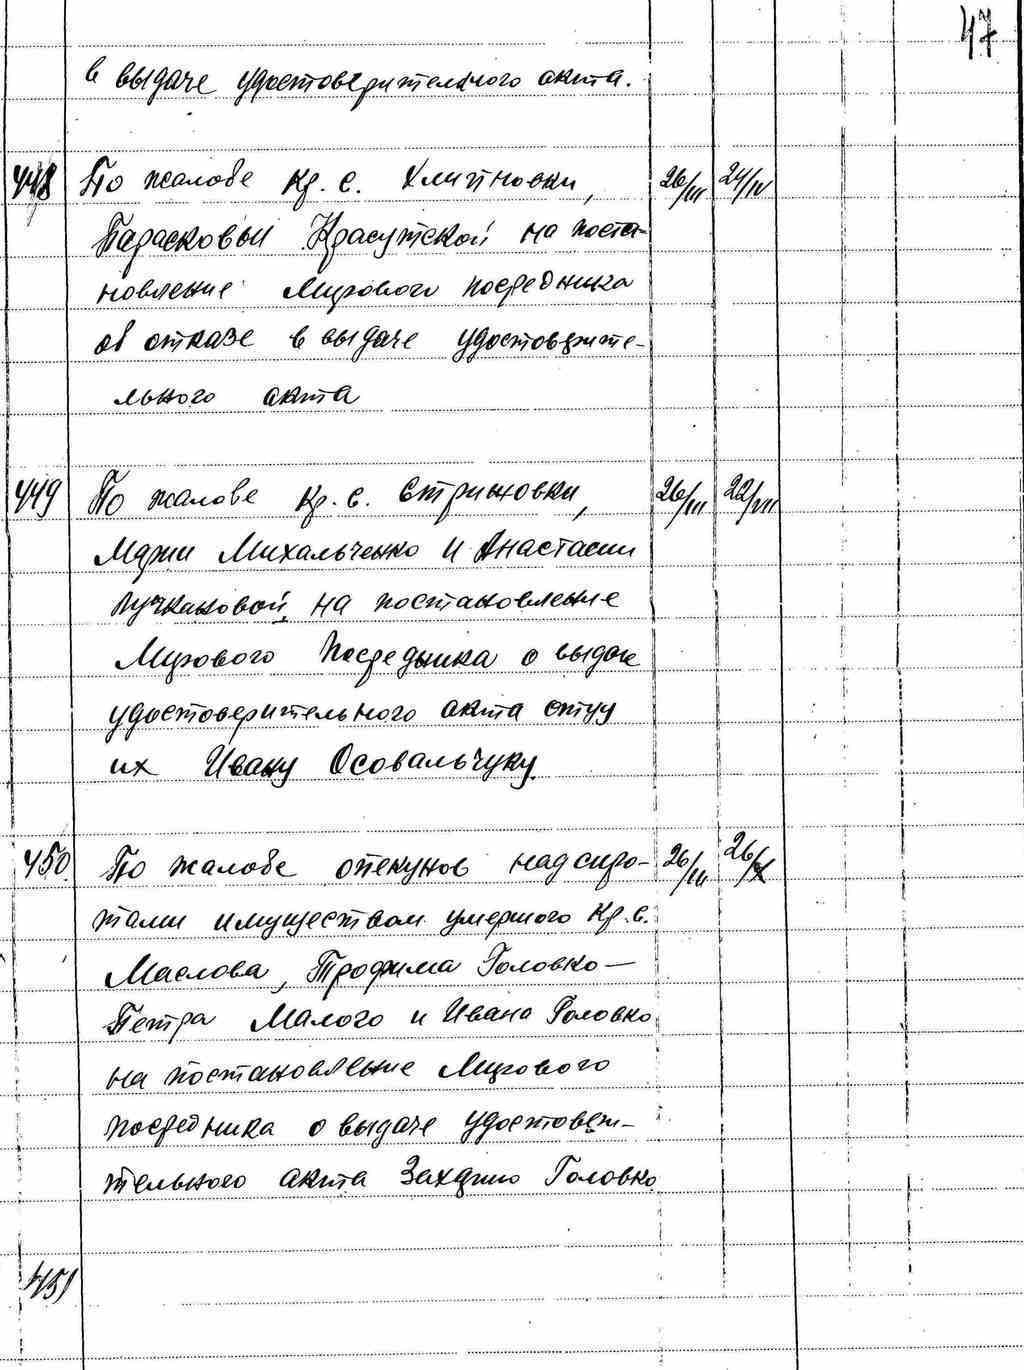 47
в выдаче удостоверительного акта.
448 По жалобе кр. с. Хлиповки, 26/III 24/IV
Парасковьи Красутской на поста-
новление Мирового посредника
об отказе в выдаче удостоверите-
льного акта
449 По жалобе кр. с. Стрижовки, 26/III 22/VII
Марии Михальченко и Анастасии
Лучкановой, на постановление
Мирового Посредника о выдаче
удостоверительного акта отцу
их Ивану Осовальчуку.
450 По жалобе опекунов над сиро- 26/III 26/X
тами имуществом умершого Кр. с.
Маслова, Трофима Головко —
Петра Малого и Ивана Головко
на постановление Мирового
посредника о выдаче удостовери-
тельного акта Захарию Головко
451